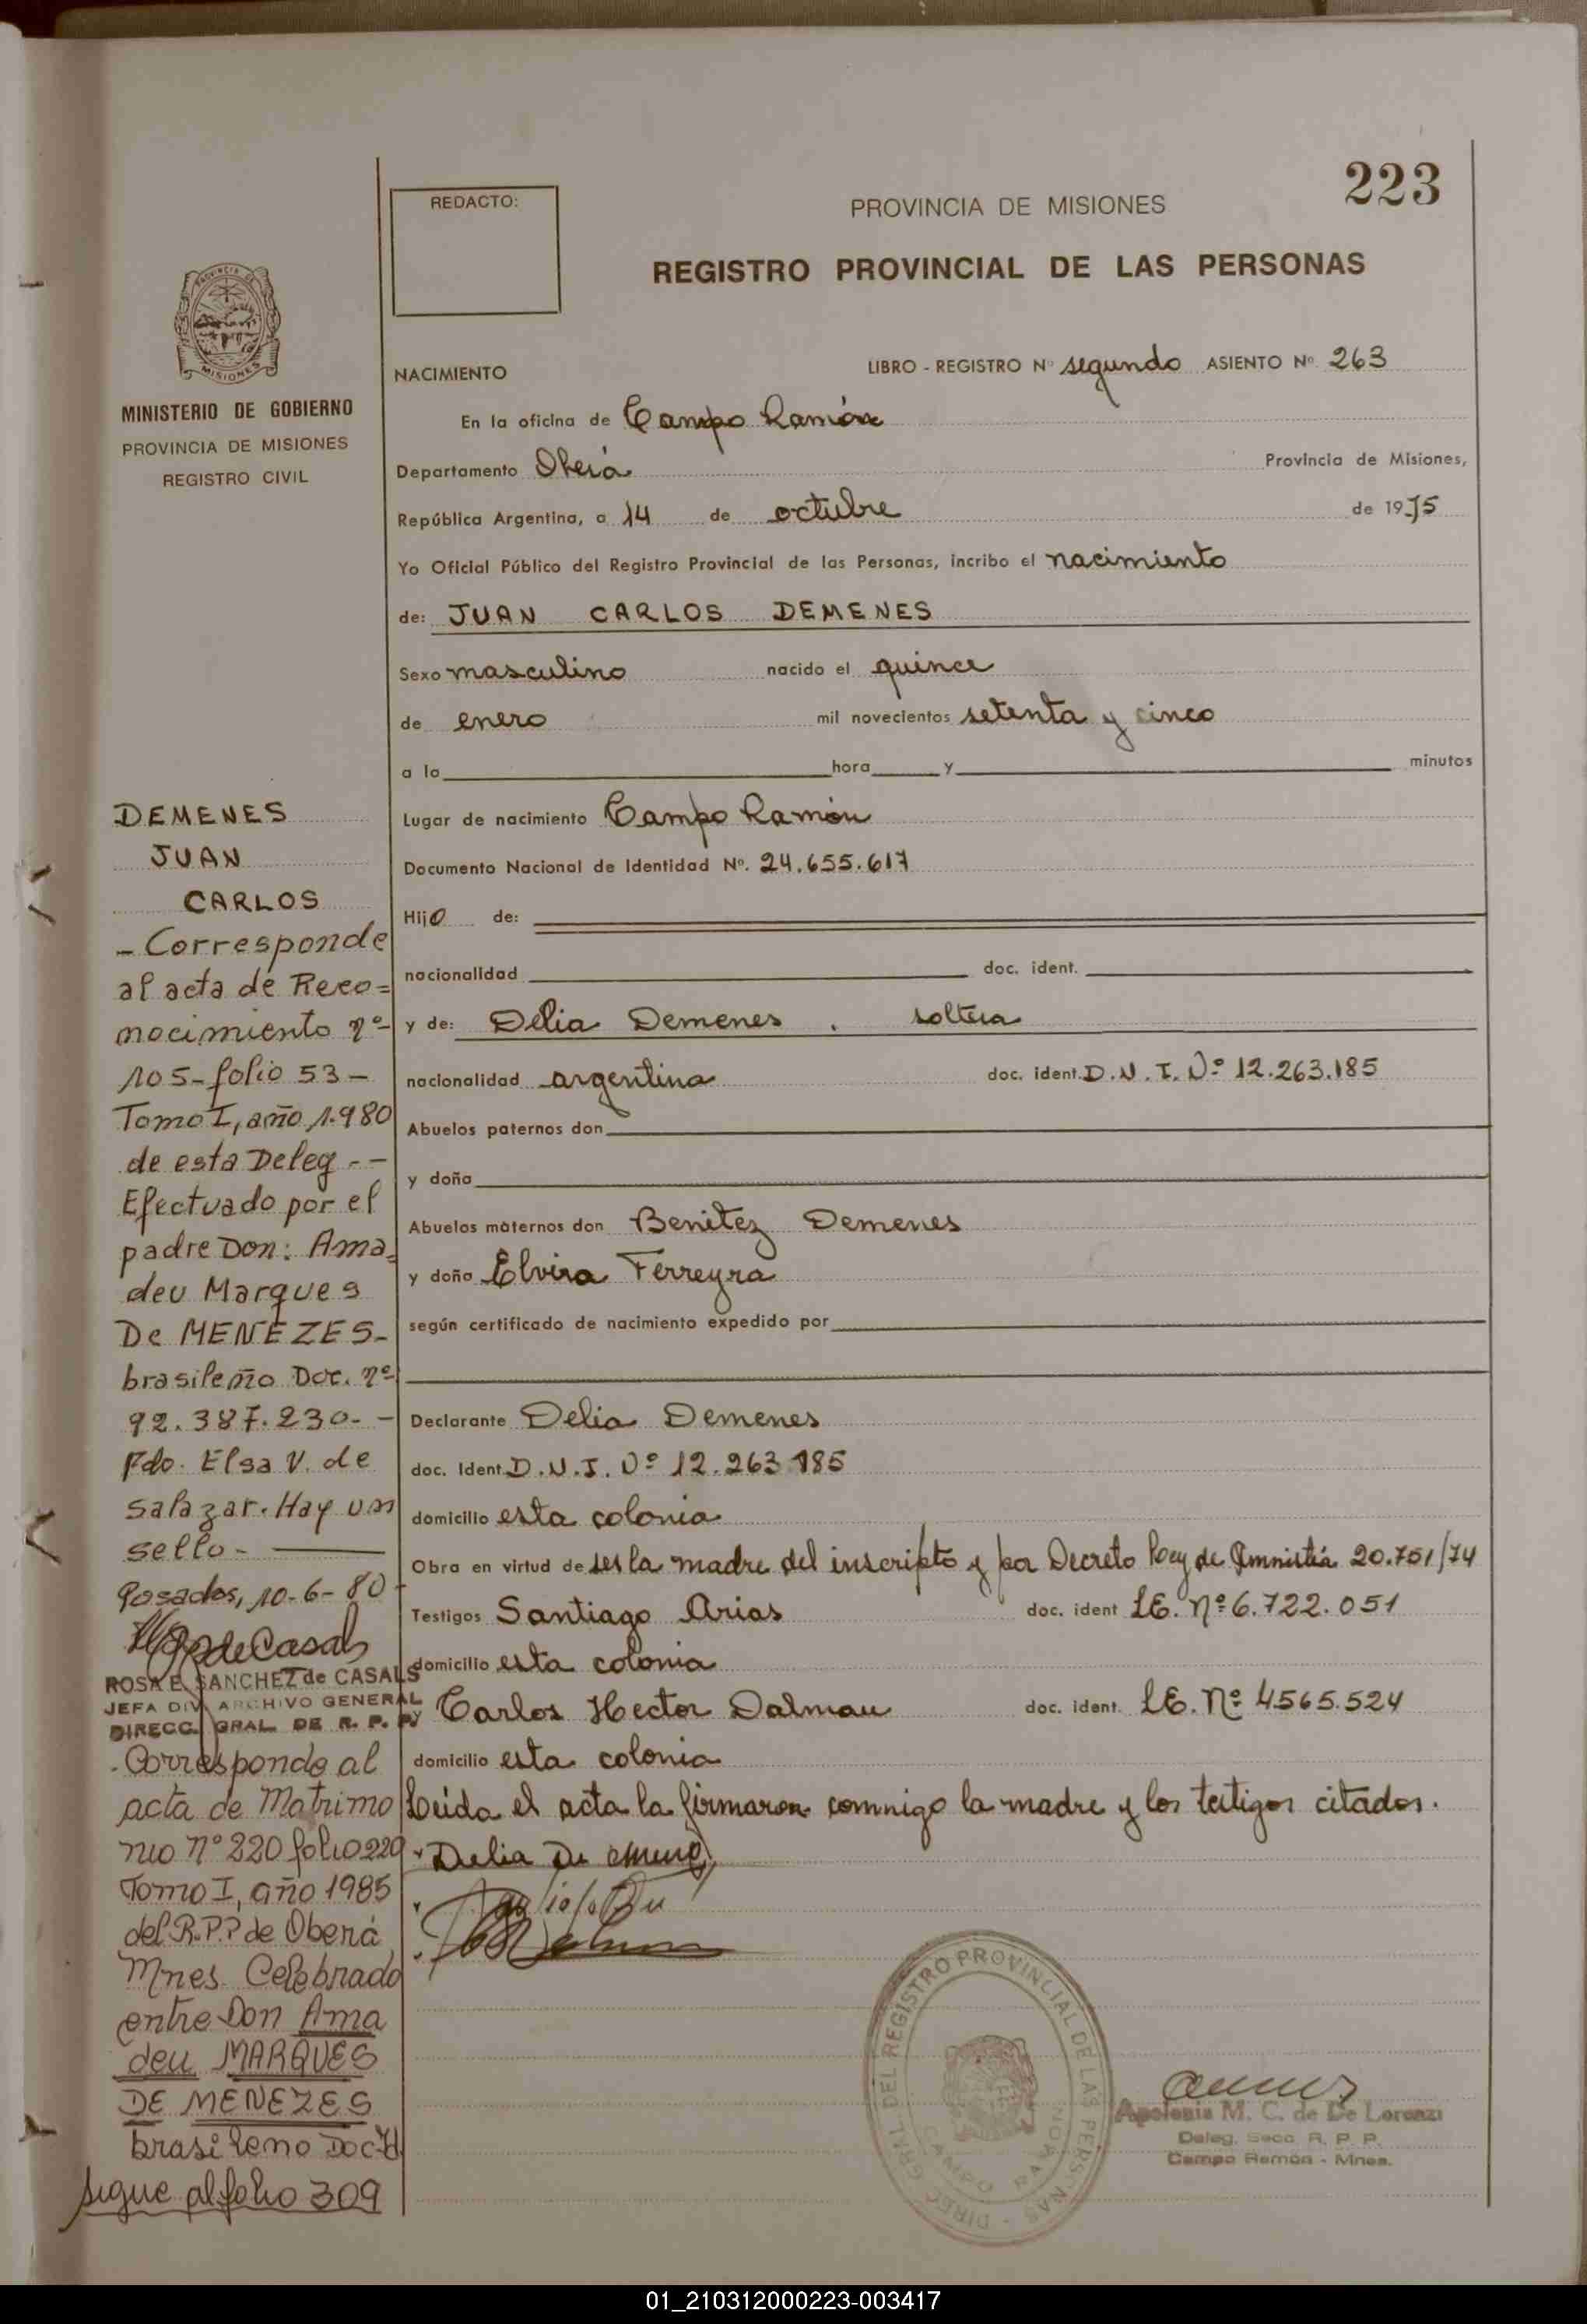 223
REDACTO:
PROVINCIA DE MISIONES
REGISTRO PROVINCIAL DE LAS PERSONAS
MISIONES
MINISTERIO DE GOBIERNO
PROVINCIA DE MISIONES
REGISTRO CIVIL
NACIMIENTO LIBRO - REGISTRO Nº segundo ASIENTO Nº 263
En la oficina de Campo Ramón
Departamento Oberá Provincia de Misiones,
República Argentina, a 14 de octubre de 1975
Yo Oficial Público del Registro Provincial de las Personas, incribo el nacimiento
de: JUAN CARLOS DEMENES
Sexo masculino nacido el quince
de enero mil novecientos setenta y cinco
a la hora y minutos
Lugar de nacimiento Campo Ramón
Documento Nacional de Identidad Nº. 24.655.617
Hijo de:
nacionalidad doc. ident.
y de: Delia Demenes . soltera
nacionalidad argentina doc. ident. D.N.I. Nº 12.263.185
Abuelos paternos don
y doña
Abuelos maternos don Benitez Demenes
y doña Elvira Ferreyra
según certificado de nacimiento expedido por
Declarante Delia Demenes
doc. Ident. D.N.I. Nº 12.263.185
domicilio esta colonia
Obra en virtud de ser la madre del inscripto y por Decreto Ley de Amnistía 20.751/74
Testigos Santiago Arias doc. ident LE. Nº 6.722.051
domicilio esta colonia
y Carlos Hector Dalmau doc. ident. LE. Nº 4565.524
domicilio esta colonia
Leida el acta la firmaron comnigo la madre y los testigos citados.
Delia De
DEMENES
JUAN
CARLOS
- Corresponde
al acta de Reco=
nocimiento nº
105-folio 53-
Tomo I, año 1.980
de esta Deleg.--
Efectuado por el
padre Don: Ama=
deu Marques
De MENEZES-
brasileño Doc. nº
92.387.230.-
Fdo. Elsa V. de
Salazar. Hay un
sello-
Posadas, 10-6-80
de Casals
ROSA E. SANCHEZ de CASALS
JEFA DIV. ARCHIVO GENERAL
DIRECC. GRAL. DE R. P. P.
-Corresponde al
acta de Matrimo
nio Nº 220 folio 220
Tomo I, año 1985
del R.P.P de Oberá
Mnes. Celebrado
entre Don Ama
deu MARQUES
DE MENEZES
brasileno Doc Id
sigue al folio 309
DIREC. GRAL DEL REGISTRO PROVINCIAL DE LAS PERSONAS
CAMPO RAMON
Apolonia M. C. de De Lorenzi
Deleg. Secc. R. P. P.
Campo Ramón - Mnes.
01_210312000223-003417